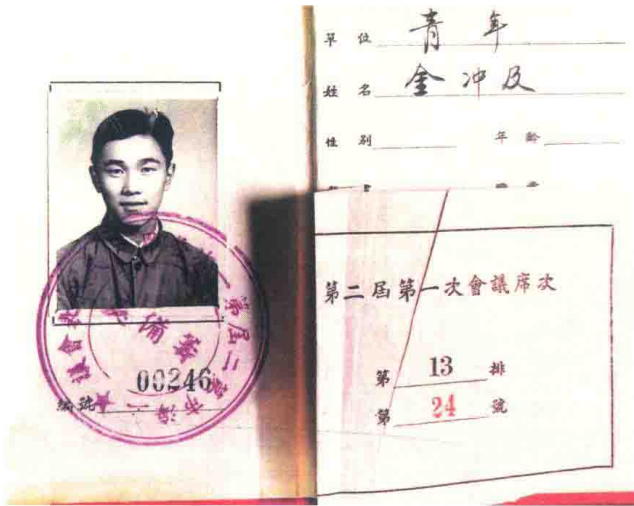 單位 青年
姓名 金冲及
性別 年齡
第二屆第一次會議席次
第 13 排
第 24 號
編號 00246